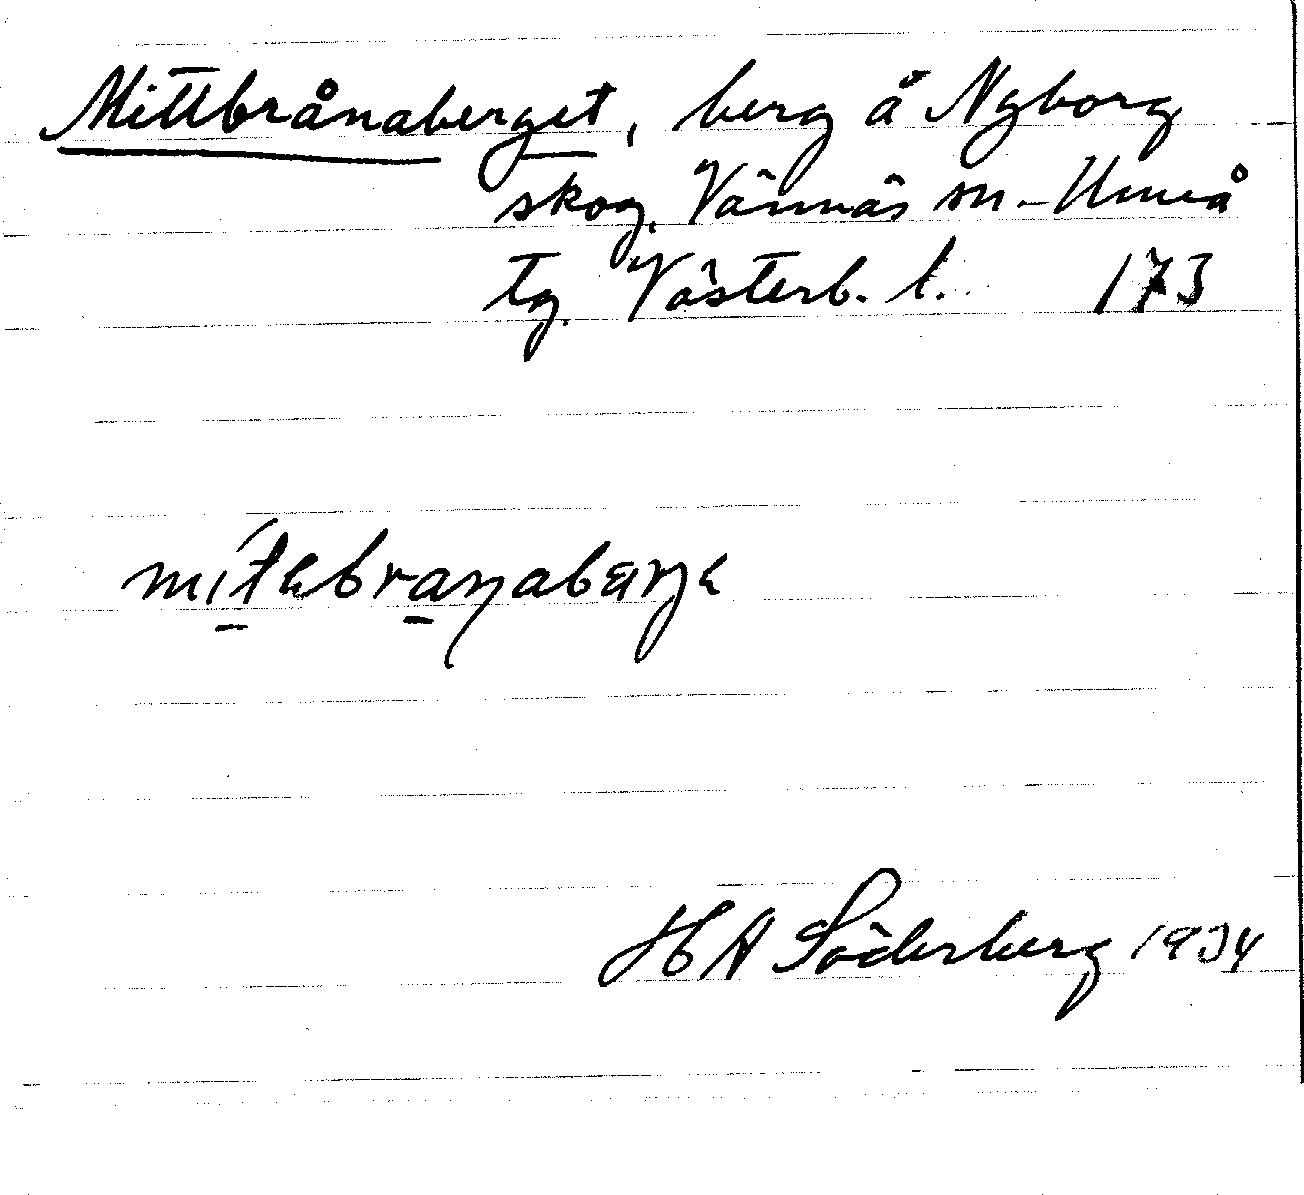 Mittbrånaberget, berg å Nyborg
skog, Vännäs sn – Umeå
tg. Västerb. l. 173
H A Söderberg 1934